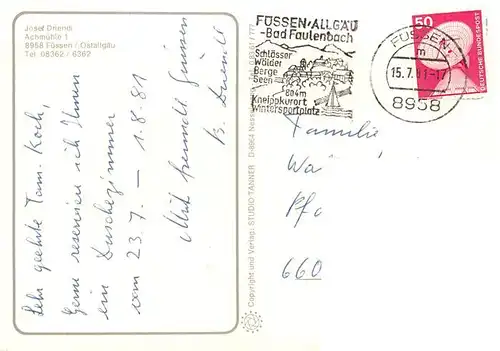 Josef Driendl
Achmühle 1
8958 Füssen / Ostallgäu
Tel. 08362 / 6362
Sehr geehrte Fam. Koch,
Gerne reserviere ich Ihnen
ein Duschezimmer
vom 23.7. – 1.8.81
Mit freundl. Grüssen
Copyright und Verlag: STUDIO TANNER D-8964 Nesse
FÜSSEN·ALLGÄU
-Bad Faulenbach
Schlösser
Wälder
Berge
Seen
804m
Kneippkurort
Wintersportplatz
FÜSSEN
m
15.7.81-17
8958
50
DEUTSCHE BUNDESPOST
Familie
660